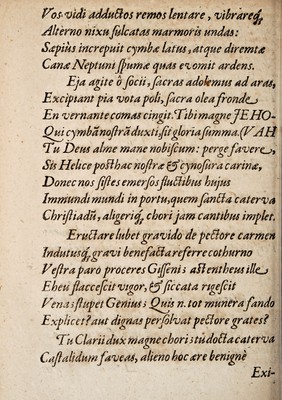 Vos vidi adductos remos lentare, vibrareq́;
Alterno nixu sulcatas marmoris undas:
Sæpiùs increpuit cymbæ latus, atque diremtæ
Canæ Neptuni spumæ quas evomit ardens.
Eja agite ô socii, sacras adolemus ad aras,
Excipiant pia vota poli, sacra olea fronde
En vernante comas cingit. Tibi magne JEHO-
Qui cymbā nostrā duxti sit gloria summa. (VAH
Tu Deus alme mane nobiscum: perge favere,
Sis Helice posthac nostræ & cynosura carinæ,
Donec nos sistes emersos fluctibus hujus
Immundi mundi in portu, quem sancta caterva
Christiadū, aligeriq́; chori jam cantibus implet.
Eructare lubet gravido de pectore carmen
Indutusq́; gravi benefacta referre cothurno
Vestra paro proceres Gisseni: ast entheus ille
Eheu flaccescit vigor, & siccata rigescit
Vena: stupet Genius: Quis n. tot munera fando
Explicet? aut dignas persolvat pectore grates?
Tu Clarii dux magne chori: tu docta caterva
Castalidum faveas, alieno hoc ære benignè
Exi-